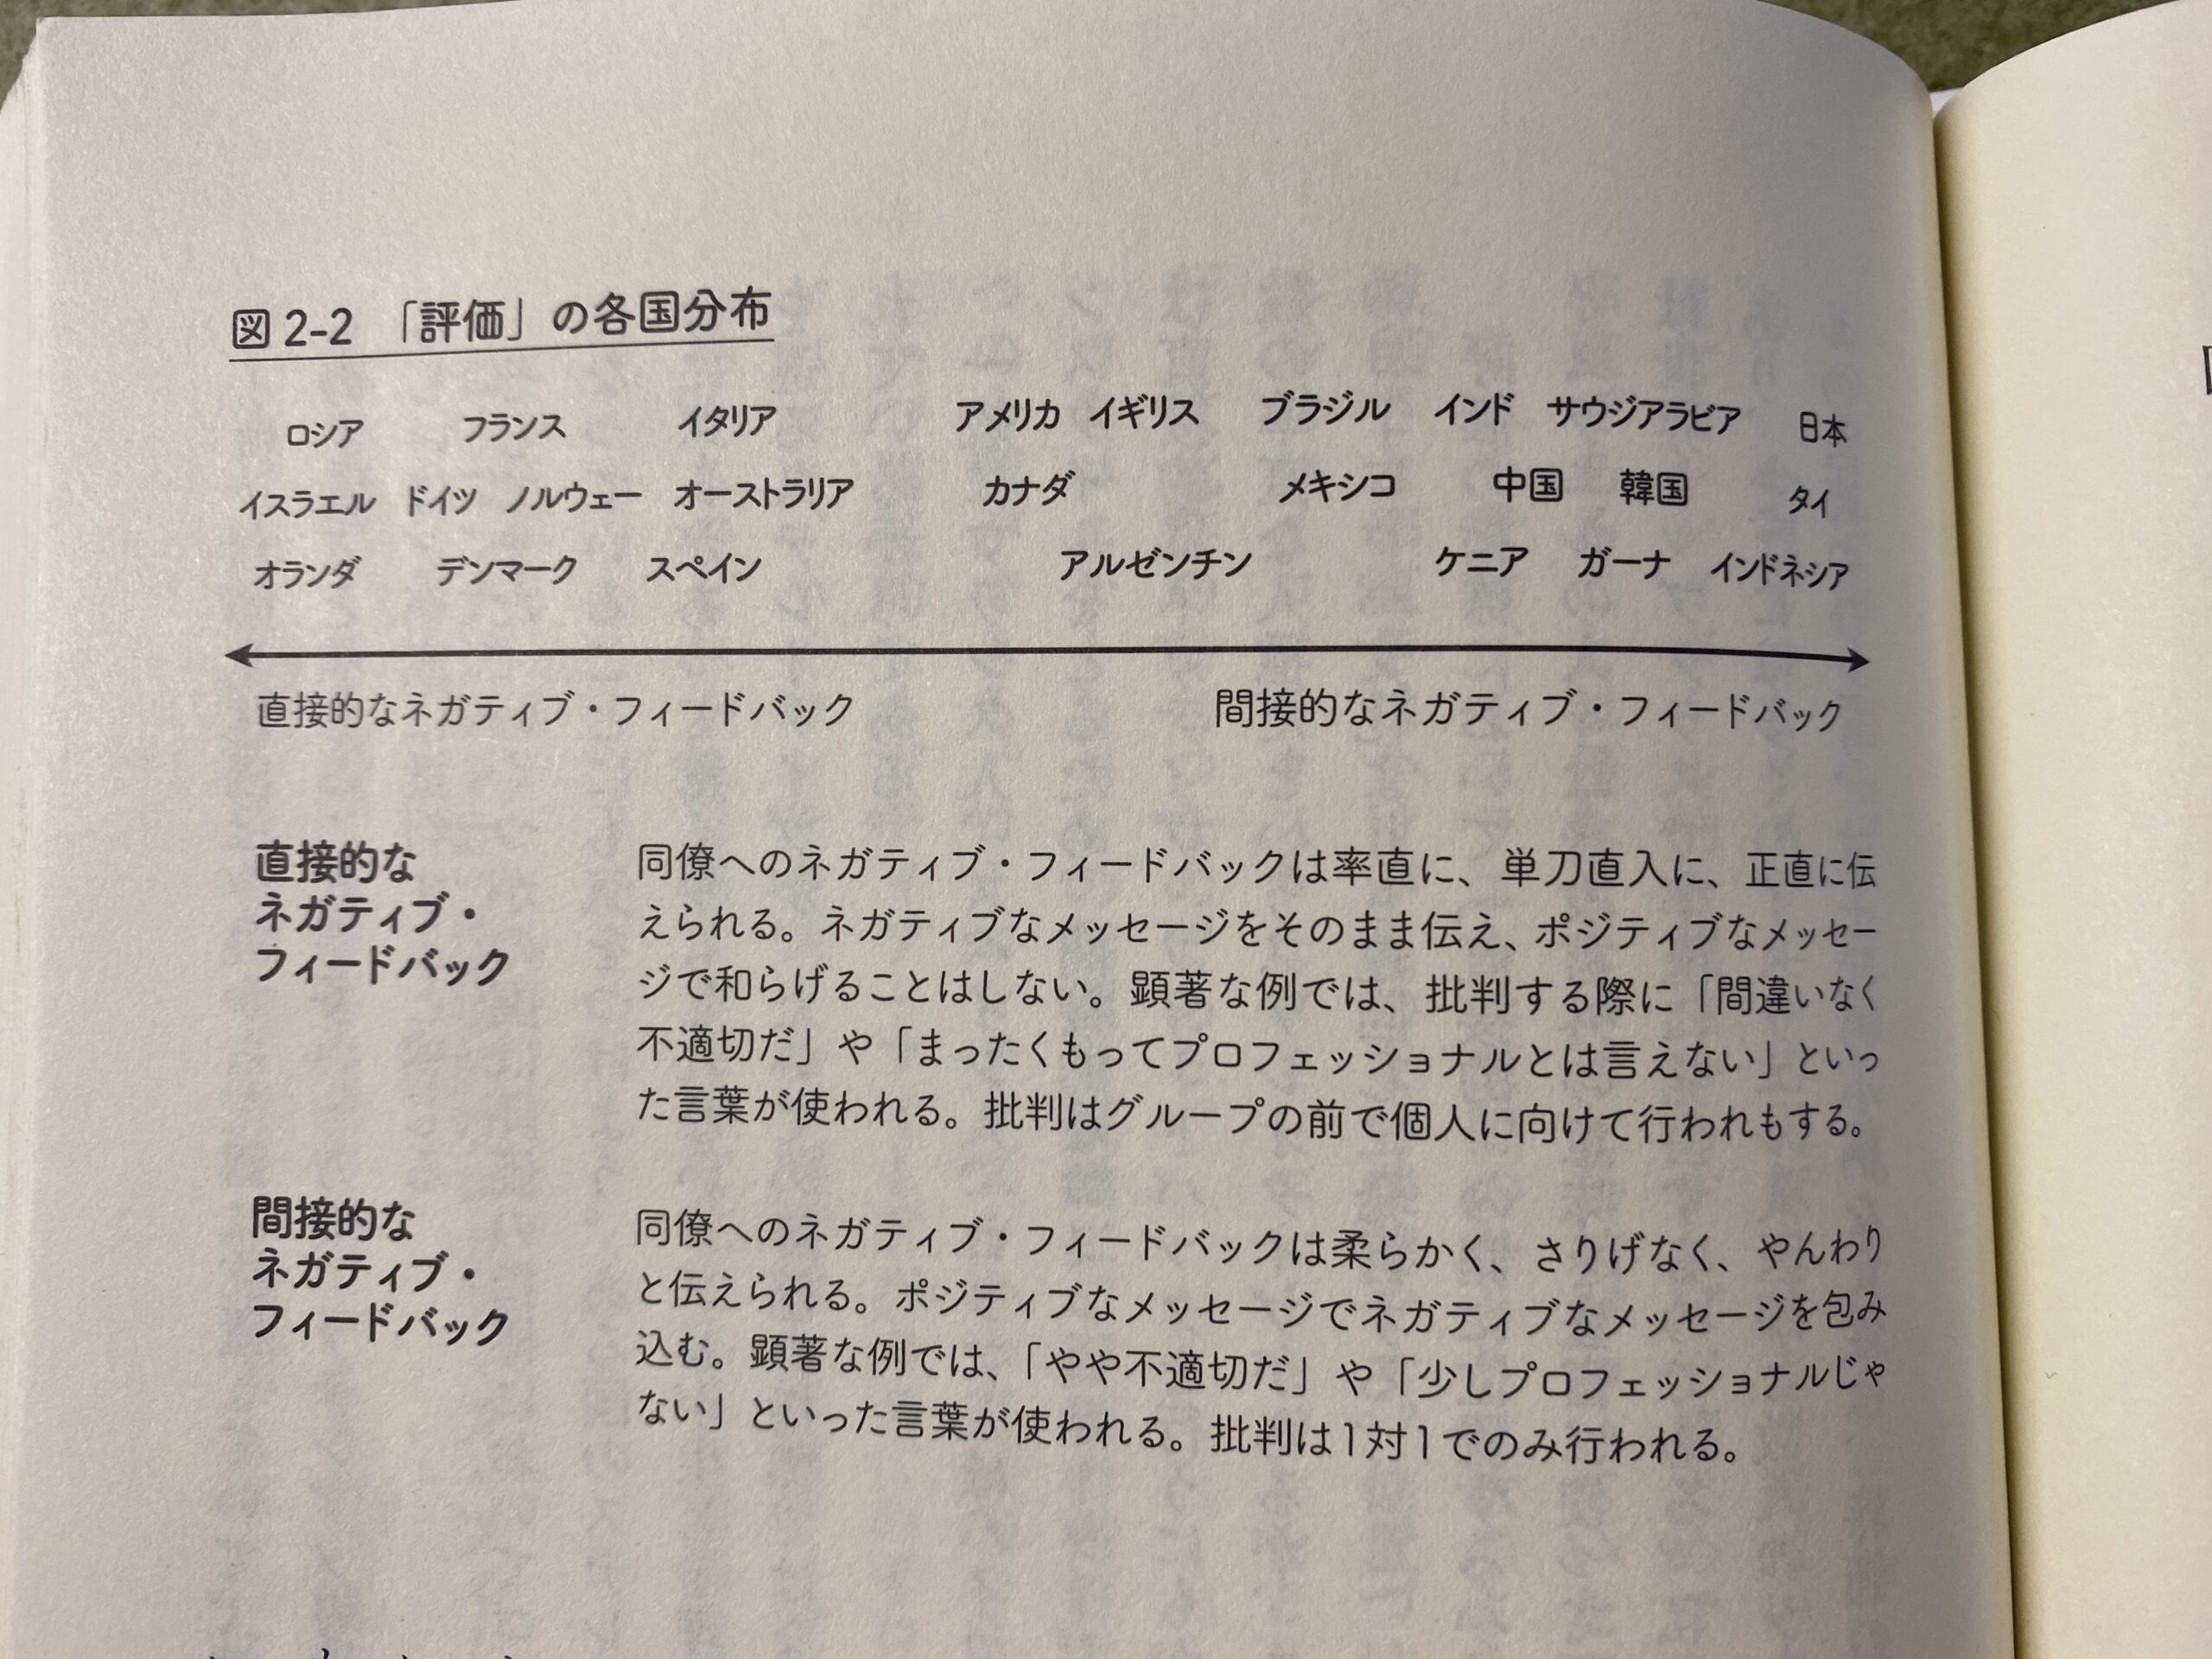 図2-2 「評価」の各国分布
ロシア フランス イタリア アメリカ イギリス ブラジル インド サウジアラビア 日本
イスラエル ドイツ ノルウェー オーストラリア カナダ メキシコ 中国 韓国 タイ
オランダ デンマーク スペイン アルゼンチン ケニア ガーナ インドネシア
直接的なネガティブ・フィードバック 間接的なネガティブ・フィードバック
直接的な
ネガティブ・
フィードバック
同僚へのネガティブ・フィードバックは率直に、単刀直入に、正直に伝
えられる。ネガティブなメッセージをそのまま伝え、ポジティブなメッセー
ジで和らげることはしない。顕著な例では、批判する際に「間違いなく
不適切だ」や「まったくもってプロフェッショナルとは言えない」といっ
た言葉が使われる。批判はグループの前で個人に向けて行われもする。
間接的な
ネガティブ・
フィードバック
同僚へのネガティブ・フィードバックは柔らかく、さりげなく、やんわり
と伝えられる。ポジティブなメッセージでネガティブなメッセージを包み
込む。顕著な例では、「やや不適切だ」や「少しプロフェッショナルじゃ
ない」といった言葉が使われる。批判は1対1でのみ行われる。